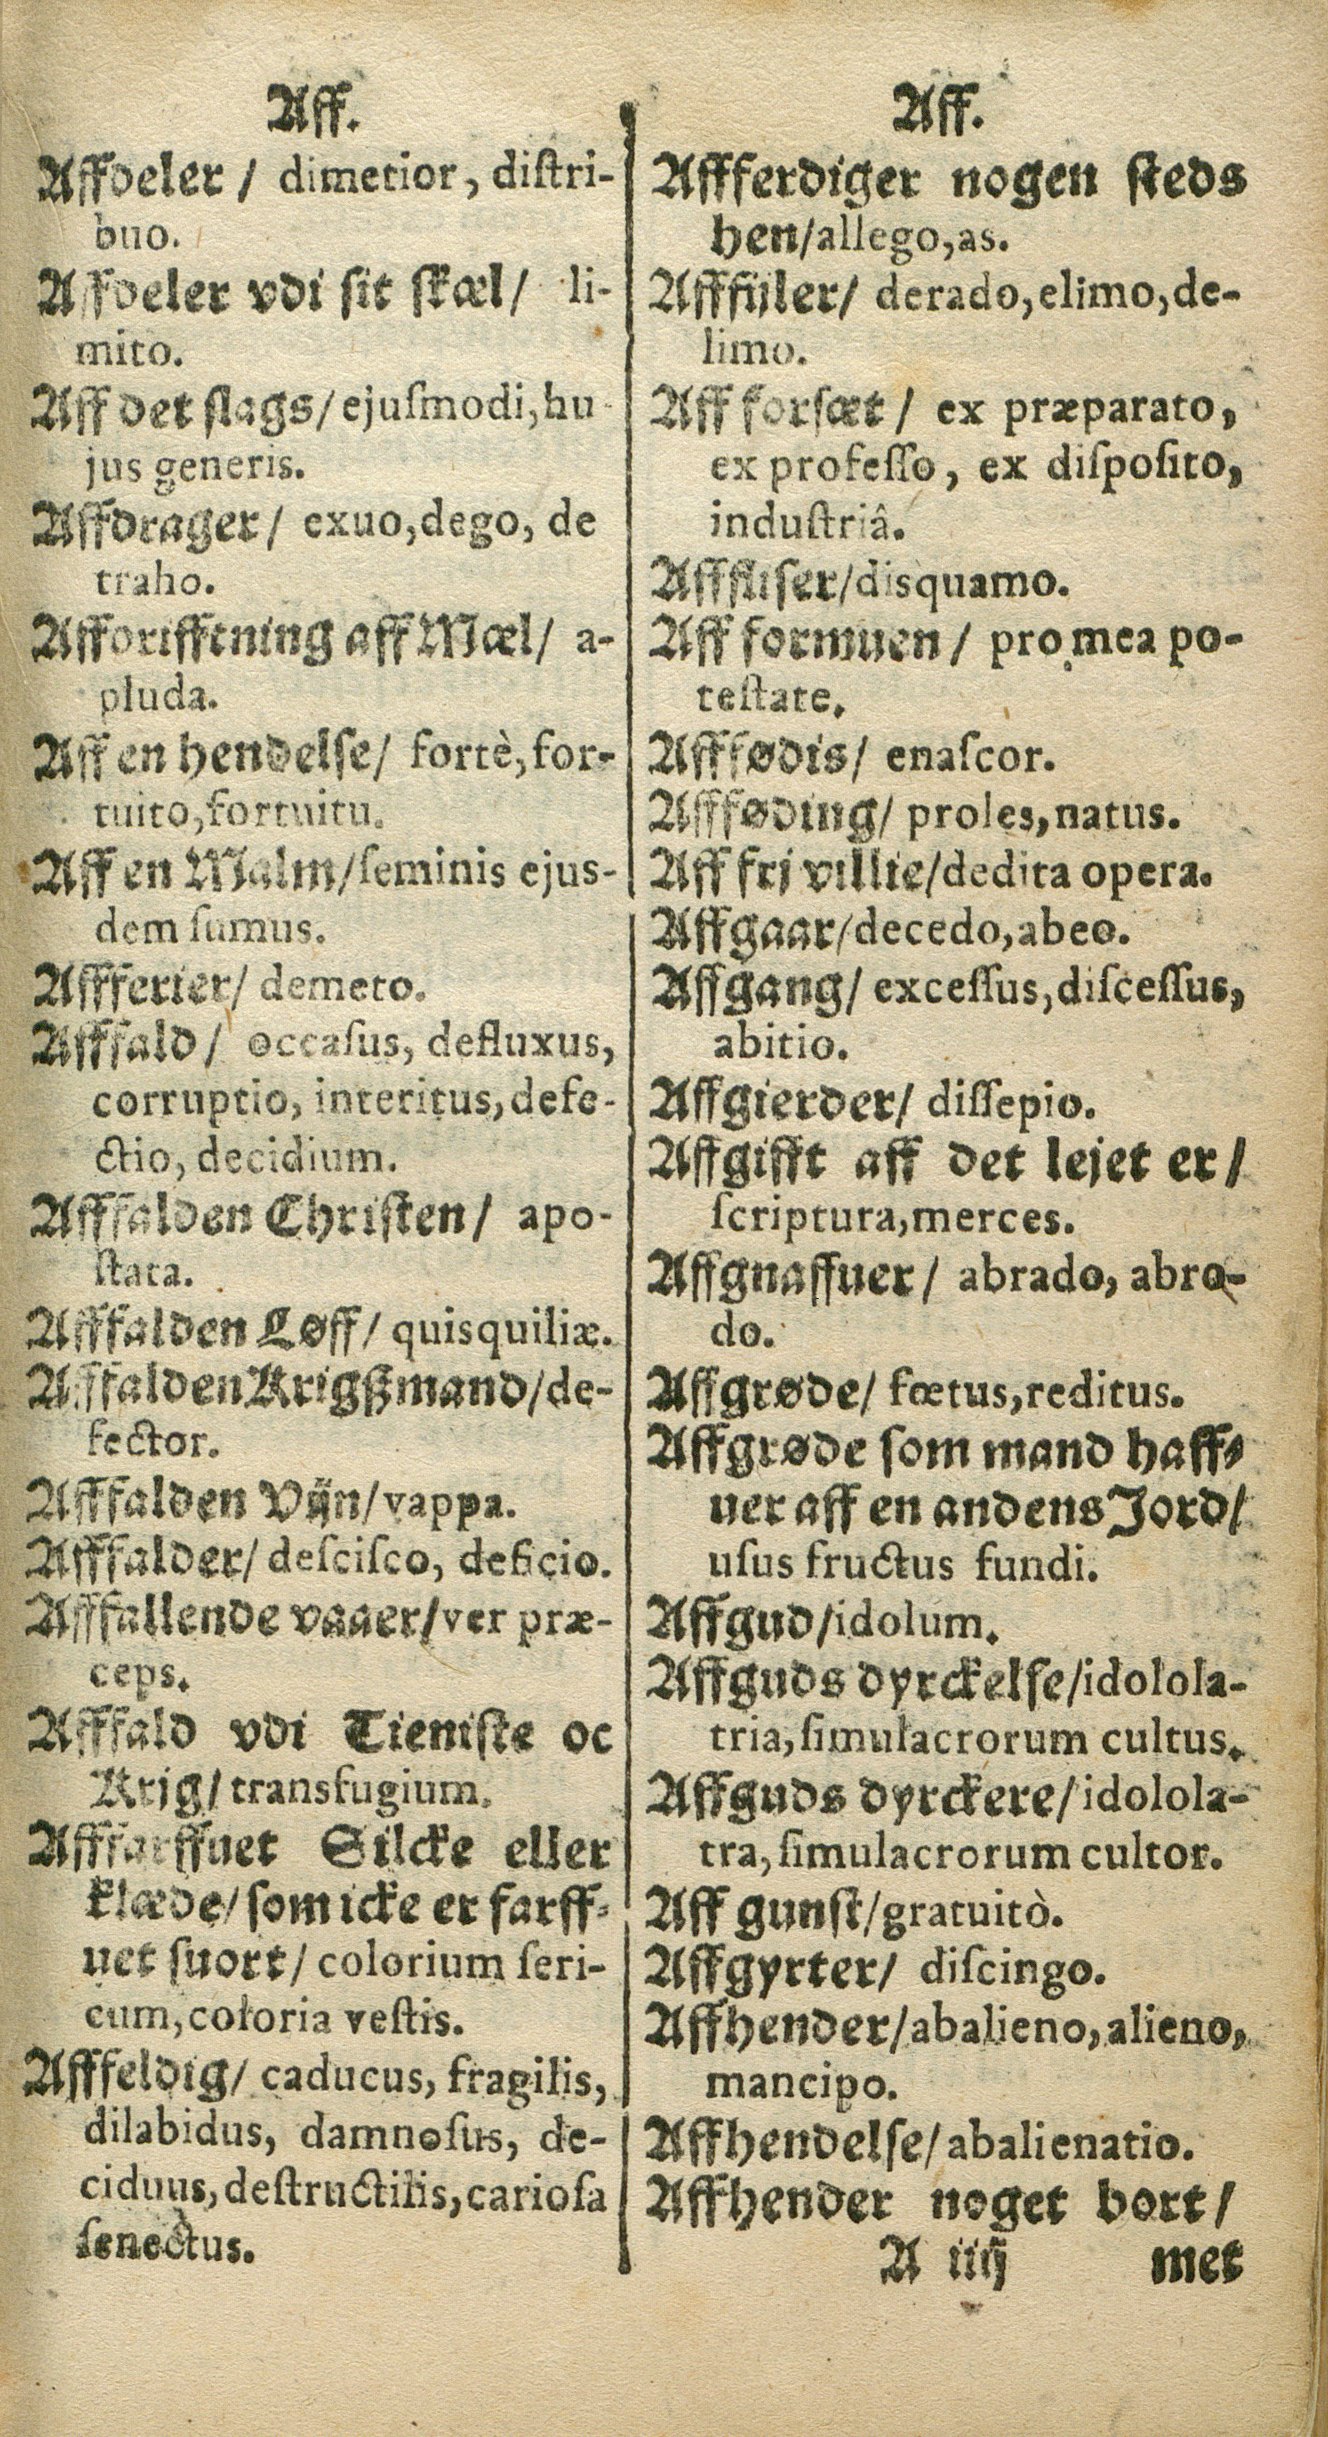 Aff.
Affdeler / dimetior, diſtri-
buo.
Affdeler vdi ſit ſkæl/ li-
mito.
Aff det ſlags/ ejuſmodi, hu
jus generis.
Affdrager/ exuo, dego, de
traho.
Affdrifftning aff Mæl/ a-
pluda.
Aff en hendelſe/ fortè, for-
tuito, fortuitu.
Aff en Malm/ ſeminis ejus-
dem ſumus.
Affferier/ demeto.
Afffald/ occaſus, defluxus,
corruptio, interitus, defe-
ctio, decidium.
Afffalden Chriſten/ apo-
ſtata.
Afffalden Løff/ quisquiliæ.
Afffalden Krigßmand/ de-
fector.
Afffalden Vijn/ vappa.
Afffalder/ deſciſco, deficio.
Afffallende vaaer/ ver præ-
ceps.
Afffald vdi Tieniſte oc
Krig/ transfugium.
Afffarffuet Silcke eller
klæde/ ſom icke er farff-
uet ſuort/ colorium ſeri-
cum, coloria veſtis.
Afffeldig/ caducus, fragilis,
dilabidus, damnoſus, de-
ciduus, deſtructilis, carioſa
ſenectus.
Aff.
Affferdiger nogen ſteds
hen/ allego, as.
Afffijler/ derado, elimo, de-
limo.
Aff forſæt/ ex præparato,
ex profeſſo, ex diſpoſito,
induſtriâ.
Afffliſer/ disquamo.
Aff formuen/ pro mea po-
teſtate.
Afffødis/ enaſcor.
Affføding/ proles, natus.
Aff frj villie/ dedita opera.
Affgaar/ decedo, abeo.
Affgang/ exceſſus, diſceſſus,
abitio.
Affgierder/ diſſepio.
Affgifft aff det lejet er/
ſcriptura, merces.
Affgnaffuer/ abrado, abro-
do.
Affgrøde/ fœtus, reditus.
Affgrøde ſom mand haff-
uer aff en andens Jord/
uſus fructus fundi.
Affgud/ idolum.
Affguds dyrckelſe/ idolola-
tria, ſimulacrorum cultus.
Affguds dyrckere/ idolola-
tra, ſimulacrorum cultor.
Aff gunſt/ gratuitò.
Affgyrter/ diſcingo.
Affhender/ abalieno, alieno,
mancipo.
Affhendelſe/ abalienatio.
Affhender noget bort/
A iiij met